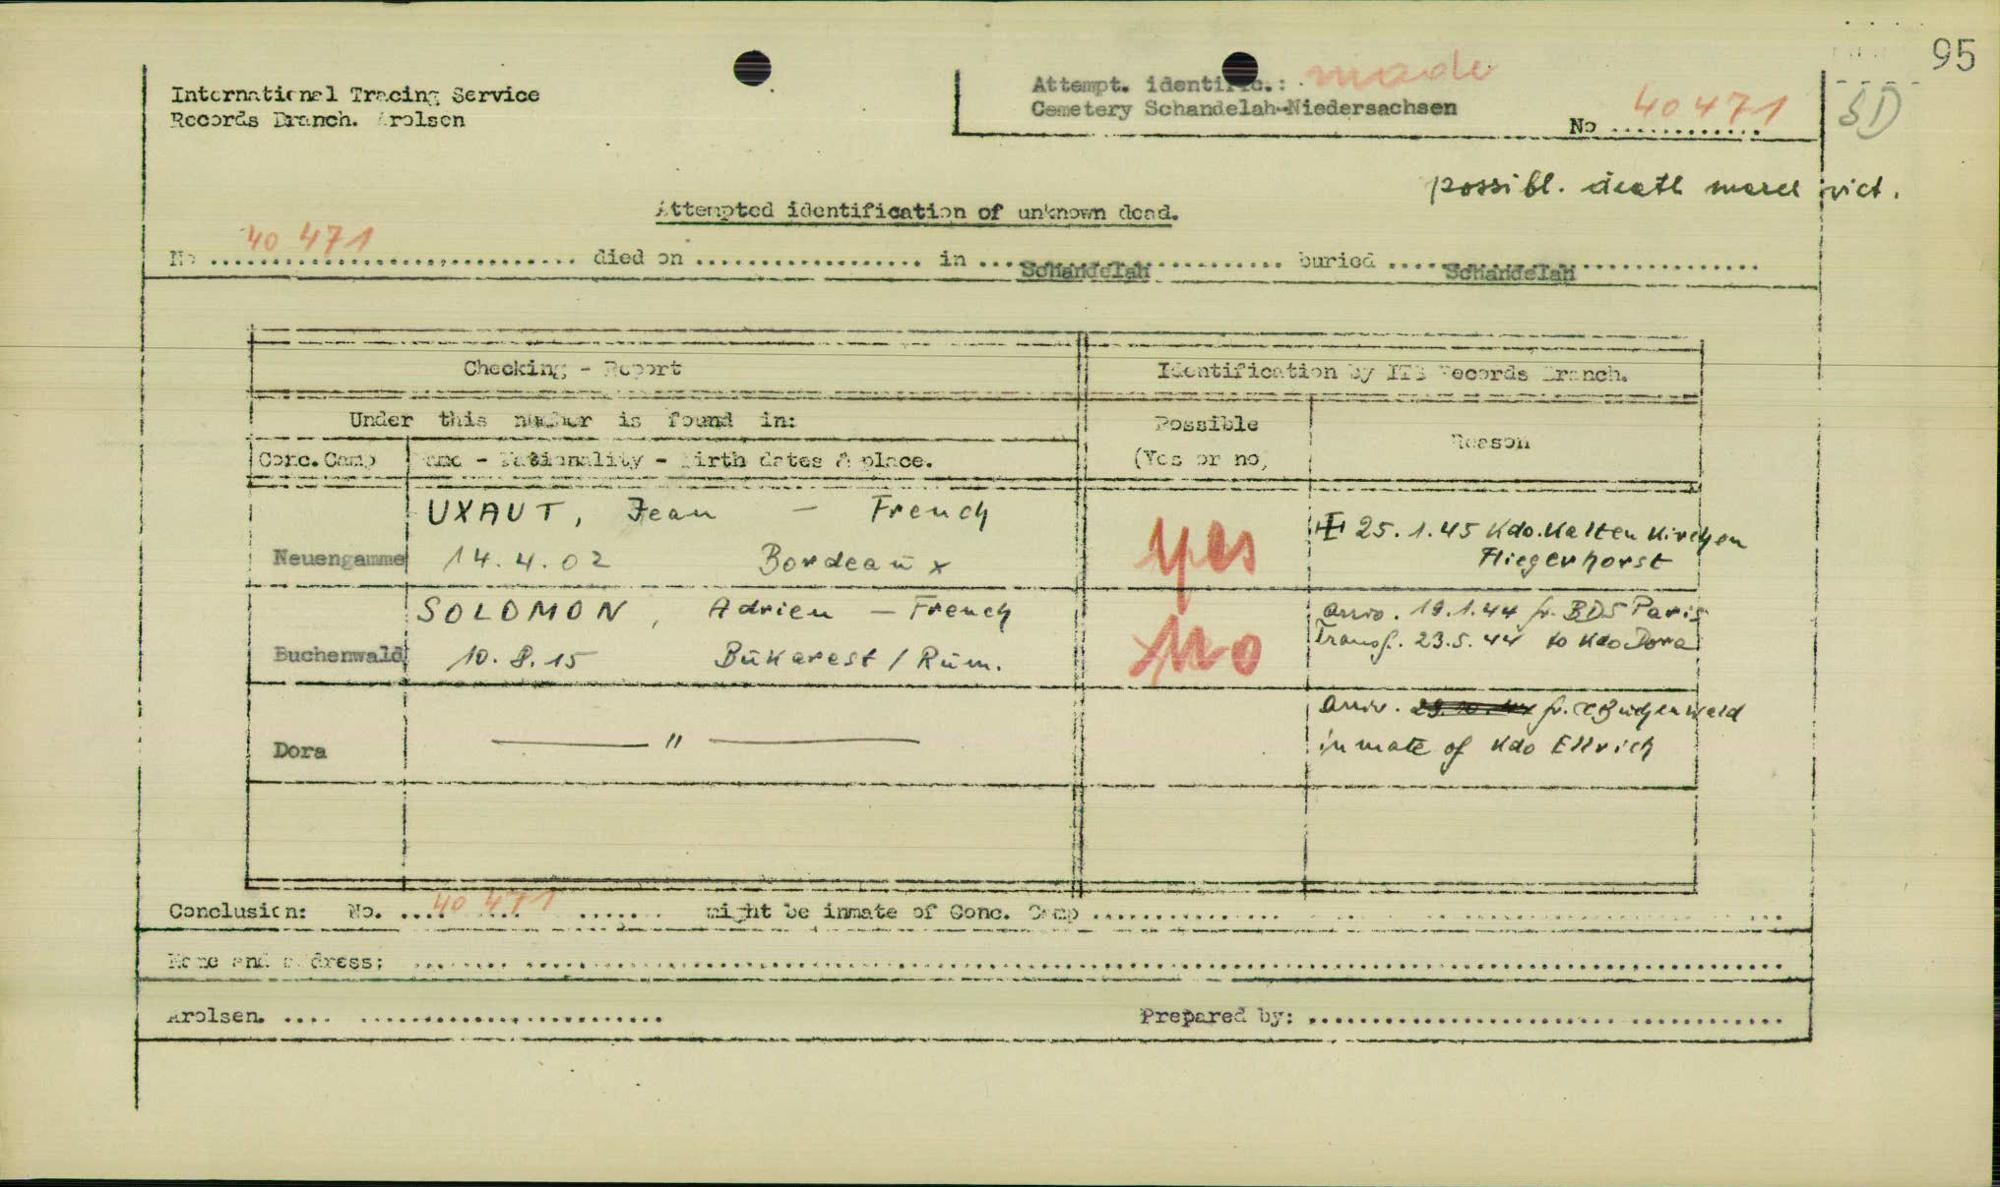 95
International Tracing Service
Records Branch. Arolsen
Attempt. identific.: made
Cemetery Schandelah-Niedersachsen
No ............. 40471
SD
possibl. death march vict.
Attempted identification of unknown dead.
No 40 471 died on .................. in .... Schandelah ............. buried .... Schandelah ..............
Checking - Report
Identification by ITS Records Branch.
Under this number is found in:
Possible
(Yes or no)
Reason
Conc. Camp
Name - Nationality - Birth dates & place.
UXAUT, Jean — French
Neuengamme 14.4.02 Bordeaux
yes
25.1.45 Kdo. Kaltenkirchen
Fliegerhorst
SOLOMON, Adrien — French
Buchenwald 10.8.15 Bukarest / Rum.
no
arriv. 19.1.44 fr. BDS Paris
Transf. 23.5.44 to Kdo Dora
Dora — " —
arriv. fr. CC Buchenwald
inmate of Kdo Ellrich
Conclusion: No. 40 471 might be inmate of Conc. Camp ..............
Name and address: ..............
Arolsen. .... ........................
Prepared by: ..............